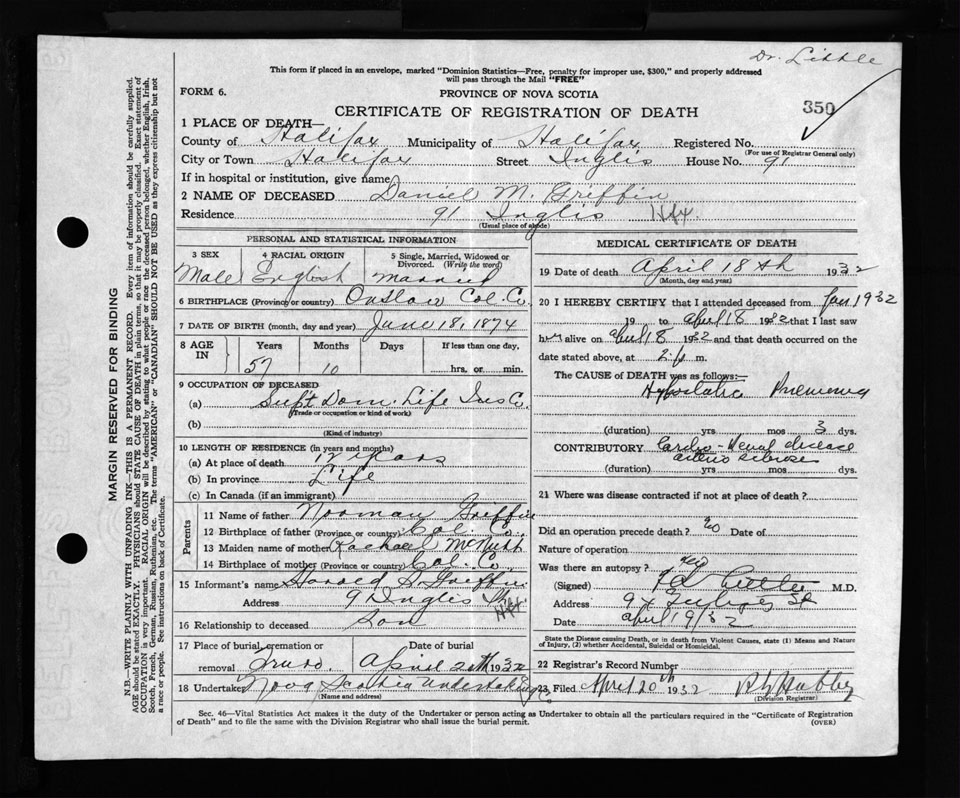 Dr. Little
This form if placed in an envelope, marked "Dominion Statistics—Free, penalty for improper use, $300," and properly addressed
will pass through the Mail "FREE"
FORM 6.
PROVINCE OF NOVA SCOTIA
CERTIFICATE OF REGISTRATION OF DEATH
350
1 PLACE OF DEATH—
County of Halifax Municipality of Halifax Registered No.
(For use of Registrar General only)
City or Town Halifax Street Inglis House No. 91
If in hospital or institution, give name
2 NAME OF DECEASED Daniel M. Griffin
Residence 91 Inglis Hfx.
(Usual place of abode)
PERSONAL AND STATISTICAL INFORMATION
3 SEX 4 RACIAL ORIGIN 5 Single, Married, Widowed or
Divorced. (Write the word)
Male English Married
6 BIRTHPLACE (Province or country) Onslow Col. Co.
7 DATE OF BIRTH (month, day and year) June 18, 1874
8 AGE IN Years Months Days If less than one day.
57 10 hrs. or min.
9 OCCUPATION OF DECEASED
(a) Supt Dom. Life Ins Co.
(Trade or occupation or kind of work)
(b)
(Kind of industry)
10 LENGTH OF RESIDENCE (in years and months)
(a) At place of death years
(b) In province Life
(c) In Canada (if an immigrant)
Parents
11 Name of father Norman Griffin
12 Birthplace of father (Province or country) Col. Co.
13 Maiden name of mother Rachael McNutt
14 Birthplace of mother (Province or country) Col. Co.
15 Informant's name Harold S. Griffin
Address 91 Inglis St Hfx.
16 Relationship to deceased Son
17 Place of burial, cremation or Date of burial
removal Truro. April 20th 1932
18 Undertaker Nova Scotia Undertaking Co
(Name and address)
MEDICAL CERTIFICATE OF DEATH
19 Date of death April 18th 1932
(Month, day and year)
20 I HEREBY CERTIFY that I attended deceased from Jan 1932
19 to April 18 1932 that I last saw
him alive on April 18 1932 and that death occurred on the
date stated above, at m.
The CAUSE of DEATH was as follows:
Hypostatic Pneumonia
(duration) yrs mos 3 dys.
CONTRIBUTORY Cardio-Renal disease
arterio sclerosis
(duration) yrs mos dys.
21 Where was disease contracted if not at place of death?
Did an operation precede death? no Date of
Nature of operation
Was there an autopsy? no
(Signed) M.D.
Address
Date April 19/32
State the Disease causing Death, or in death from Violent Causes, state (1) Means and Nature
of Injury, (2) whether Accidental, Suicidal or Homicidal.
22 Registrar's Record Number
23 Filed April 20th 1932
(Division Registrar)
Sec. 46—Vital Statistics Act makes it the duty of the Undertaker or person acting as Undertaker to obtain all the particulars required in the "Certificate of Registration
of Death" and to file the same with the Division Registrar who shall issue the burial permit.
(OVER)
MARGIN RESERVED FOR BINDING
N.B.—WRITE PLAINLY WITH UNFADING INK—THIS IS A PERMANENT RECORD. Every item of information should be carefully supplied.
AGE should be stated EXACTLY. PHYSICIANS should STATE CAUSE OF DEATH in plain terms, so that it may be properly classified. Exact statement of
OCCUPATION is very important. RACIAL ORIGIN will be described by stating to what people or race the deceased person belonged, whether English, Irish,
Scotch, French, German, Russian, Ruthenian, etc. The terms "AMERICAN" or "CANADIAN" SHOULD NOT BE USED as they express citizenship but not
a race or people. See instructions on back of Certificate.